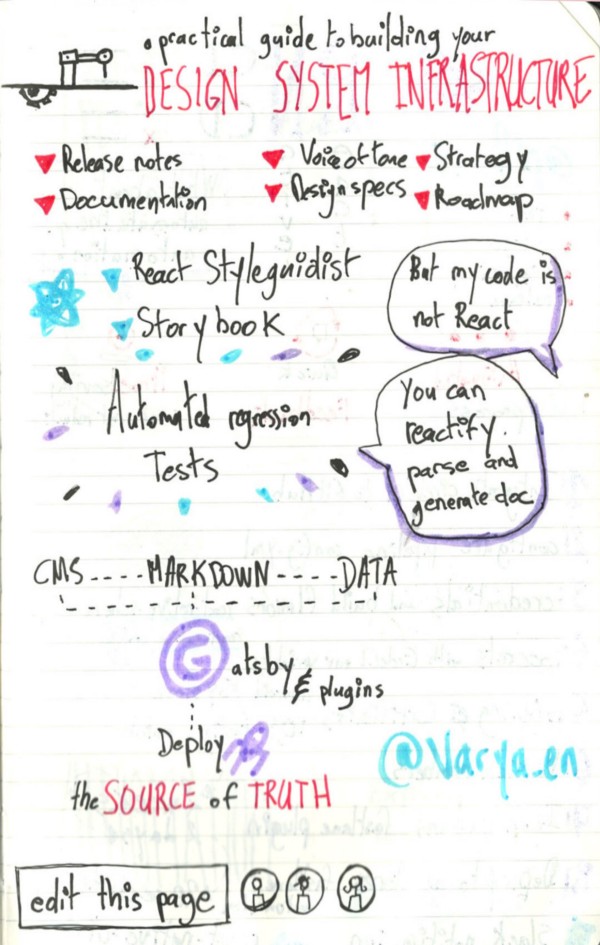 a practical guide to building your
DESIGN SYSTEM INFRASTRUCTURE
Release notes
Voice of tone
Strategy
Documentation
Design specs
Roadmap
React Styleguidist
Storybook
But my code is
not React
Automated regression
Tests
You can
reactify.
parse and
generate doc
CMS ---- MARKDOWN ---- DATA
Gatsby & plugins
Deploy
the SOURCE of TRUTH
@Varya_en
edit this page